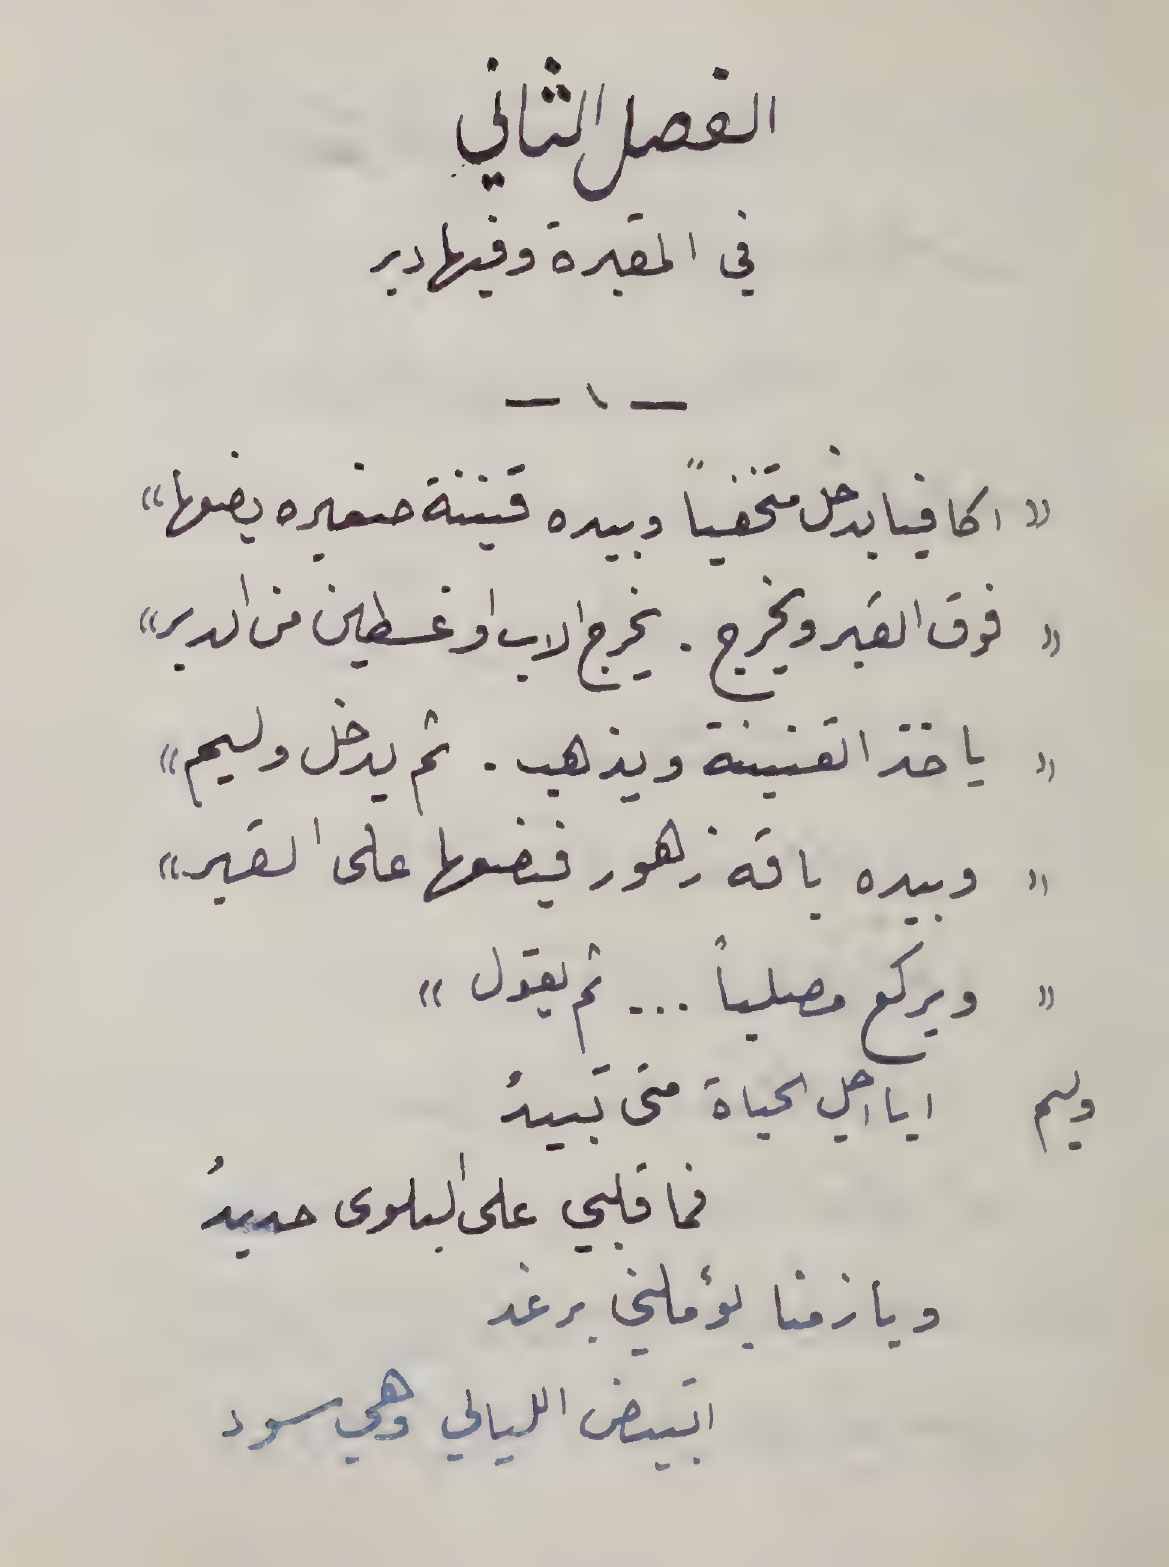 الفصل الثاني
في المقبرة وفيها دير
— ١ —
« اكافيا يدخل متخفياً وبيده قنينة صغيره يضعها »
« فوق القبر ويخرج . يخرج الاب اوغسطين من الدير »
« ياخذ القنينة ويذهب . ثم يدخل وليم »
« وبيده باقه زهور فيضعها على القبر »
« ويركع مصلياً ... ثم يقول »
وليم ايا اجل الحياة متى تبيدُ
فما قلبي على البلوى حديدُ
ويا زمنا يؤملني برغد
اتبيض الليالي وهي سود